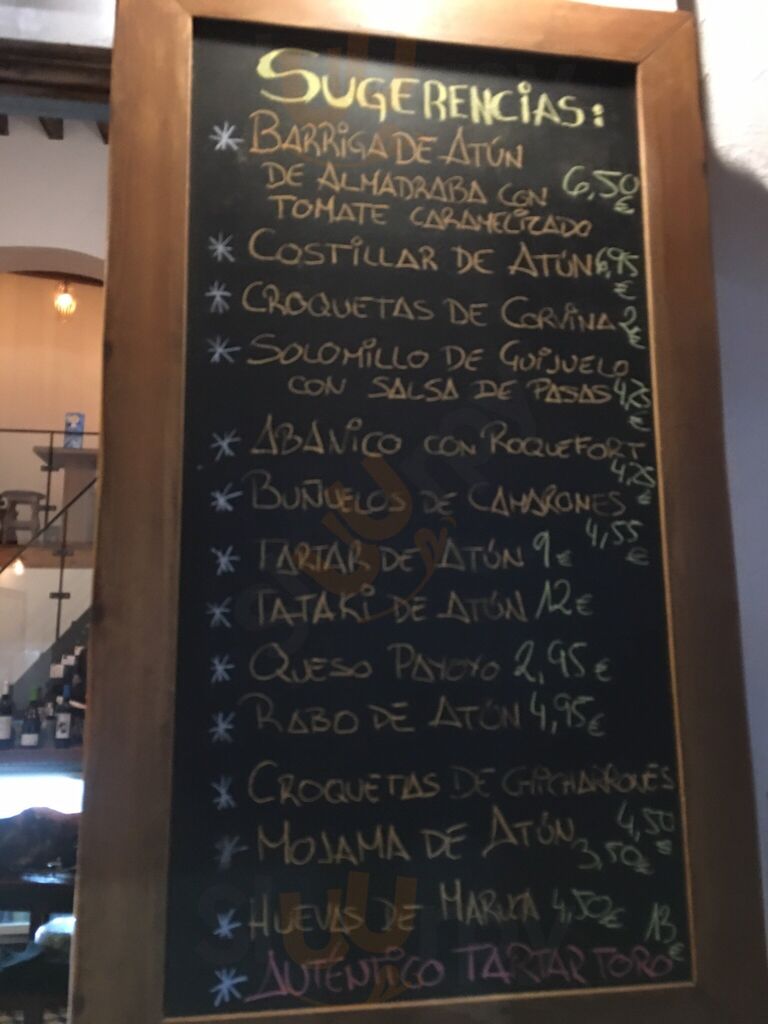 SUGERENCIAS:
* BARRIGA DE ATÚN
DE ALMADRABA CON 6,50 €
TOMATE CARAMELIZADO
* COSTILLAR DE ATÚN 6,95 €
* CROQUETAS DE CORVINA 2€
* SOLOMILLO DE GUIJUELO
CON SALSA DE PASAS 4,25 €
* ABANICO CON ROQUEFORT
4,25 €
* BUÑUELOS DE CAMARONES
4,55 €
* TARTAR DE ATÚN 9€
* TATAKI DE ATÚN 12€
* QUESO PAYOYO 2,95€
* RABO DE ATÚN 4,95€
* CROQUETAS DE CHICHARRONES
4,50 €
* MOJAMA DE ATÚN 3,50€
* HUEVAS DE MARUCA 4,50€
13 €
* AUTÉNTICO TARTAR TORO
slurpy
slurpy